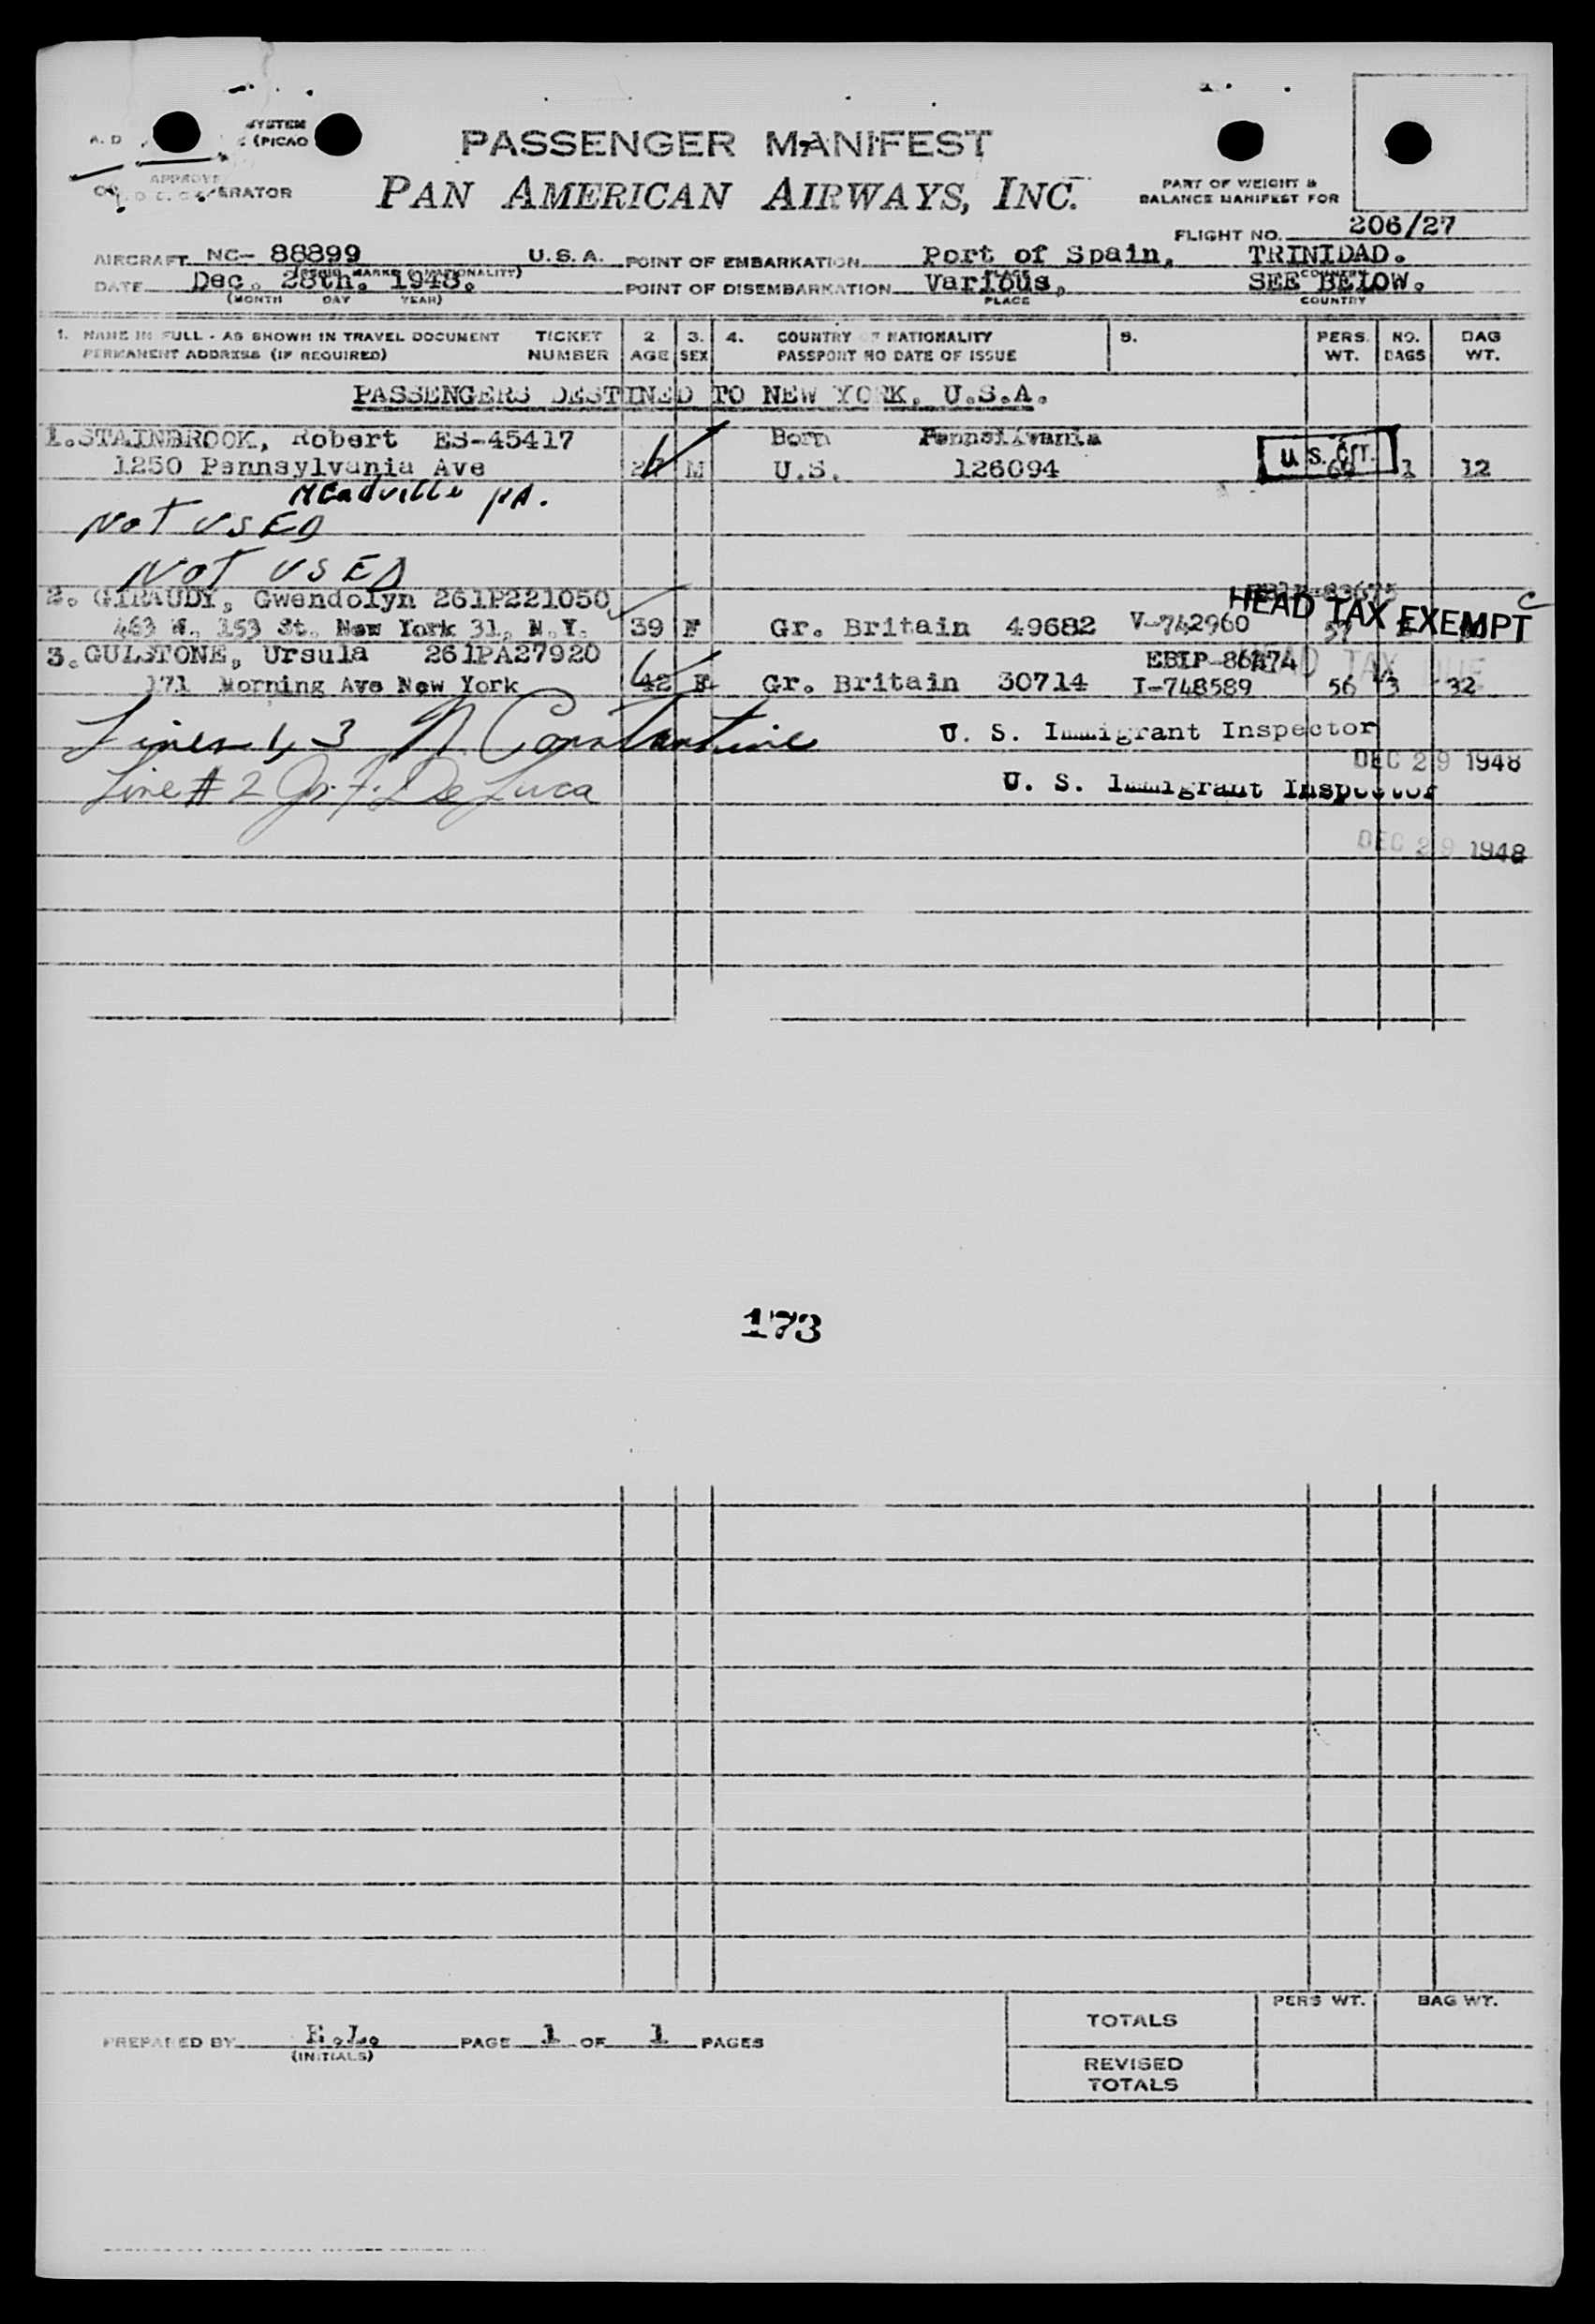 SYSTEM
A. D (PICAO
APPROVE
ERATOR
PASSENGER MANIFEST
PAN AMERICAN AIRWAYS, INC.
PART OF WEIGHT &
BALANCE MANIFEST FOR
FLIGHT NO. 206/27
AIRCRAFT NC- 88899 U.S.A. POINT OF EMBARKATION Port of Spain, TRINIDAD.
MARKS NATIONALITY) PLACE COUNTRY
DATE Dec. 28th. 1948. POINT OF DISEMBARKATION Various, SEE BELOW.
(MONTH DAY YEAR) PLACE COUNTRY
1. NAME IN FULL - AS SHOWN IN TRAVEL DOCUMENT TICKET 2 3. 4. COUNTRY OF NATIONALITY 5. PERS. NO. BAG
PERMANENT ADDRESS (IF REQUIRED) NUMBER AGE SEX PASSPORT NO DATE OF ISSUE WT. BAGS WT.
PASSENGERS DESTINED TO NEW YORK, U.S.A.
1. STAINBROOK, Robert ES-45417 Born Pennsilvania
1250 Pennsylvania Ave M U.S. 126094 U.S. CIT. 1 12
Meadville PA.
NOT USED
NOT USED
2. GIRAUDY, Gwendolyn 261P221050
463 W. 153 St. New York 31, N.Y. 39 F Gr. Britain 49682 V-742960 57
HEAD TAX EXEMPT
3. GULSTONE, Ursula 261PA27920 EBIP-86174
171 Morning Ave New York 42 F Gr. Britain 30714 I-748589 56 3 32
HEAD TAX DUE
Lines 1, 3 N Constantine U. S. Immigrant Inspector
DEC 29 1948
Line # 2 Jos. F. De Luca U. S. Immigrant Inspector
DEC 29 1948
173
PREPARED BY PAGE 1 OF 1 PAGES
(INITIALS)
PERS WT. BAG WT.
TOTALS
REVISED
TOTALS